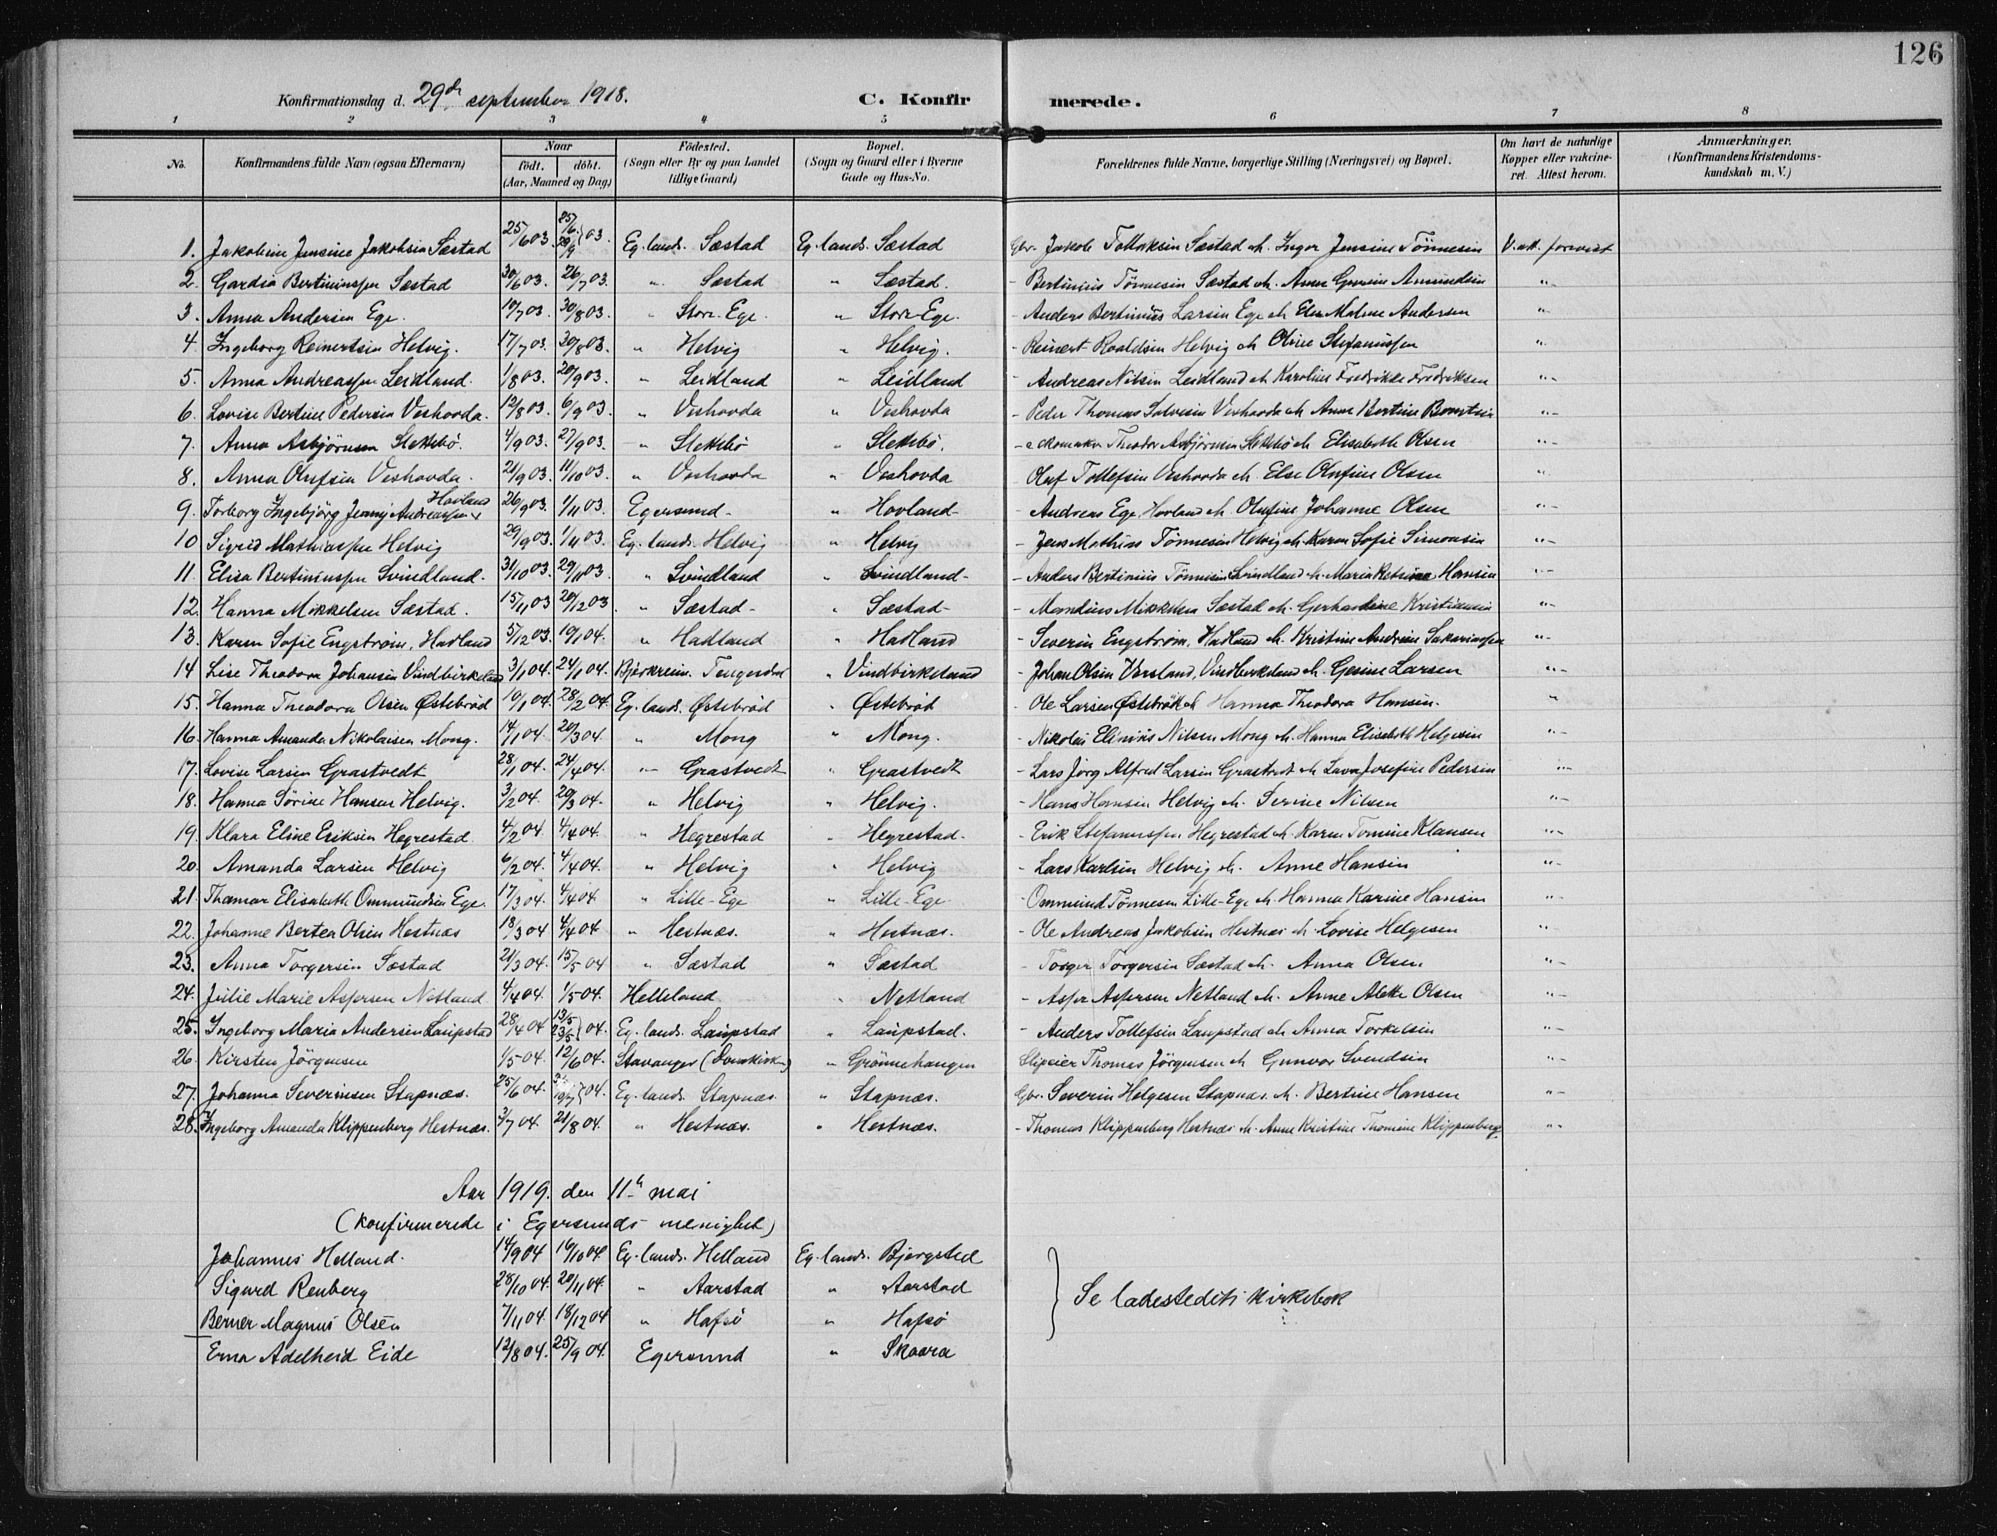 126
Konfirmationsdag d. 29de september 1918. C. Konfirmerede.
1 2 3 4 5 6 7 8
No. Konfirmandens fulde Navn (ogsaa Efternavn) Naar født. døbt. (Aar, Maaned og Dag) Fødested. (Sogn eller By og paa Landet tillige Gaard) Bopæl. (Sogn og Gaard eller i Byerne Gade og Hus-No. Forældrenes fulde Navne, borgerlige Stilling (Næringsvei) og Bopæl. Om havt de naturlige Kopper eller vakcineret. Attest herom. Anmærkninger. (Konfirmandens Kristendomskundskab m. V.)
1. Jakobine Jensine Jakobsen Sæstad 25/6 03. 03. Eg. lands. Sæstad Eg. lands. Sæstad Gbr. Jakob Tollaksen Sæstad & h. Inger Jensine Tönnesen V. att. forevist
2. Gardia Bertinussen Sæstad 30/6 03. 26/7 03. " Sæstad " Sæstad. - Bertinius Tönnesen Sæstad & h. Anne Gurine Amundsen "-
3. Anna Andersen Ege. 10/7 03. 30/8 03. " Store-Ege. " Store-Ege. - Anders Bertinius Larsen Ege & h. Else Malene Andersen "-
4. Ingeborg Reinertsen Helvig. 17/7 03. 30/8 03. " Helvig " Helvig. - Reinert Roaldsen Helvig & h. Oline Stefanussen "-
5. Anna Andreassen Leidland. 1/8 03. 20/9 03. " Leidland " Leidland - Andreas Nilsen Leidland & h. Karoline Fredrikke Fredriksen "-
6. Lovise Bertine Pedersen Veshovda. 12/8 03. 6/9 03. " Veshovda " Veshovda - Peder Thomas Salvesen Veshovda & h. Anne Bertine "-
7. Anna Asbjörnsen Slettebö. 4/9 03. 27/9 03. " Slettebö " Slettebö. Theodor Asbjörnsen Slettebö & h. Elisabeth Olsen "-
8. Anna Olufsen Veshovda. 21/9 03. 11/10 03. " Veshovda " Veshovda Oluf Tollefsen Veshovda & h. Else Olufine Olsen "-
9. Torborg Ingebjörg Jenny Andreassen Hovland 26/9 03. 1/11 03. Egersund- " Hovland- - Andreas Ege Hovland & h. Olufine Johanne Olsen "-
10 Sigrid Mathiassen Helvig 29/9 03. 1/11 03. Eg. lands. Helvig " Helvig - Jens Mathias Tönnesen Helvig & h. Karen Sofie Simonsen "-
11. Elisa Bertinussen Svindland. 31/10 03. 29/11 03. " Svindland " Svindland- - Anders Bertinius Tönnesen Svindland & h. Maria Katrine Hansen "-
12. Hanna Mikkelsen Sæstad. 15/11 03 20/12 03. " Sæstad- " Sæstad- - Mandius Mikkelsen Sæstad & h. Gerhardine Kristiansen "-
13. Karen Sofie Engström, Hadland 5/12 03. 10/1 04. " Hadland " Hadland - Severin Engström, Hadland & h. Kristine Andrine Sakariassen "-
14 Lise Theodora Johansen Vindbirkeland 3/1 04. 24/1 04. Bjerkreim. Tengesdal " Vindbirkeland - Johan Olsen Versland, Vindbirkeland & h. Gesine Larsen "-
15. Hanna Theodora Olsen Østebrød 10/1 04. 28/2 04. Eg. lands. Østebrød " Østebrød - Ole Larsen Østebrød & h. Hanna Theodora Hansen. "
16. Hanna Amanda Nikolaisen Mong. 14/1 04. 20/3 04. " Mong " Mong. - Nikolai Elinius Nilsen Mong & h. Hanna Elisabeth Helgesen "-
17. Lovise Larsen Grastvedt 28/1 04. 24/4 04. " Grastvedt " Grastvedt - Lars Jörg Alfred Larsen Grastvedt & h. Lava Josefine Pedersen "-
18. Hanna Sörine Hansen Helvig. 3/2 04. 20/3 04. " Helvig " Helvig. - Hans Hansen Helvig & h. Serine Nilsen "-
19. Klara Eline Eriksen Hegrestad 4/2 04. 4/4 04. " Hegrestad " Hegrestad- - Erik Stefanussen Hegrestad & h. Karen Tomine Klausen "-
20. Amanda Larsen Helvig 6/2 04. 4/4 04. " Helvig " Helvig - Lars Karlsen Helvig & h. Anne Hansen "-
21. Thamar Elisabeth Ommundsen Ege. 17/3 04. 4/4 04 " Lille-Ege " Lille-Ege - Ommund Tönnesen Lille-Ege & h. Hanna Karine Hansen "-
22. Johanne Bertea Olsen Hestnæs 18/3 04 4/4 04 " Hestnæs. " Hestnæs. - Ole Andreas Jakobsen Hestnæs & h. Lovise Helgesen "-
23. Anna Torgersen Sæstad 21/3 04. 15/5 04 " Sæstad " Sæstad - Torger Torgersen Sæstad & h. Anna Olsen "-
24. Julie Marie Aspersen Netland 4/4 04. 1/5 04. Helleland " Netland - Asper Aspersen Netland & h. Anne Alette Olsen "-
25. Ingeborg Maria Andersen Laupstad 28/4 04. 04. Eg. lands. Laupstad " Laupstad. - Anders Tollefsen Laupstad & h. Anna Torkelsen "-
26. Kirsten Jörgensen 1/5 04. 12/6 04. Stavanger (Domkirken) " Grönnehaugen Thomas Jörgensen & h. Gunvor Svendsen "-
27. Johanna Severinsen Stapnæs. 25/6 04. 04. Eg. lands. Stapnæs " Stapnæs. Gbr. Severin Helgesen Stapnæs & h. Bertine Hansen "-
28. Ingeborg Amanda Klippenberg Hestnæs. 3/7 04. 21/8 04. " Hestnæs. " Hestnæs. - Thomas Klippenberg Hestnæs & h. Anne Kristine Thomine Klippenberg. "-
Aar 1919. den 11te mai
(konfirmerede i Egersunds menighet)
Johannes Helland. 14/9 04 16/10 04. Eg. lands. Helland Eg. lands. Bjergsted
Sigurd Renberg 28/10 04. 20/11 04. " Aarstad " Aarstad Se ladestedets kirkebok
Berner Magnus Olsen 7/11 04. 18/12 04 " Hafsö " Hafsö
Erna Adelheid Eide 12/8 04. 25/9 04. Egersund " Skaara